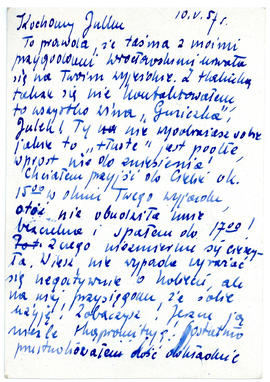 10.V.57 r.
Kochany Julku
To prawda, że taśma z moimi
przygodami wrocławskimi urwała
się na Twoim wyjeździe. Z
tak się nie kontaktowałem
to wszystko wina „Guziczka”,
Julek! Ty nie wyobrażasz sobie
jakie to „tłuste” jest podłe,
wprost nie do zniesienia!
Chciałem przyjść do Ciebie ok.
15.00 w dniu Twego wyjazdu
otóż nie obudziła mnie
i spałem do 17.00!
Z czego niezmiernie się
Wiesz nie wypada wyrażać
się negatywnie o kobiecie, ale
na nią przysięgam, że sobie
Zobaczysz! Jeszcze ją
skompromituję! Ostatnio
dość dokładnie